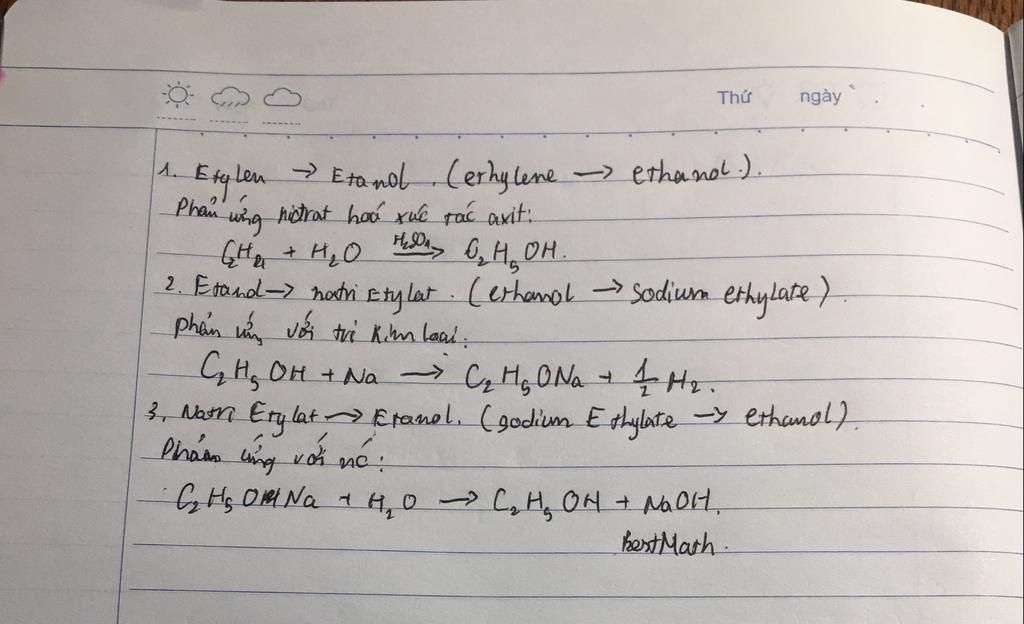 Thứ ngày
1. Etylen → Etanol. (ethylene → ethanol).
Phản ứng hiđrat hoá xúc tác axit:
C₂H₄ + H₂O H₂SO₄→ C₂H₅OH.
2. Etanol → natri Etylat. (ethanol → Sodium ethylate)
phản ứng với Kim loại:
C₂H₅OH + Na → C₂H₅ONa + 1/2 H₂.
3. Natri Etylat → Etanol. (sodium Ethylate → ethanol).
Phản ứng với nc:
C₂H₅ONa + H₂O → C₂H₅OH + NaOH.
BestMath.